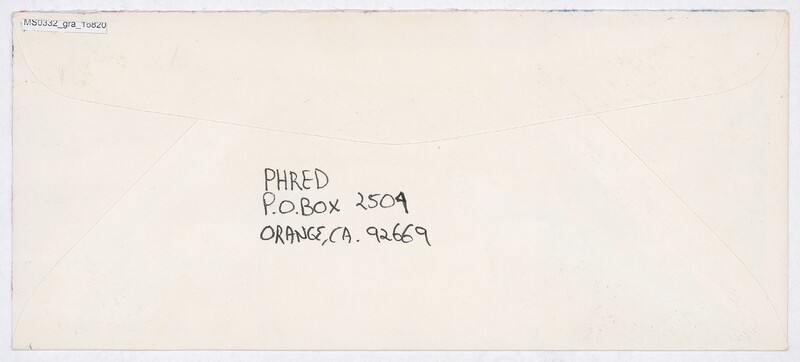 MS0332_gra_16820
PHRED
P.O.BOX 2504
ORANGE, CA. 92669